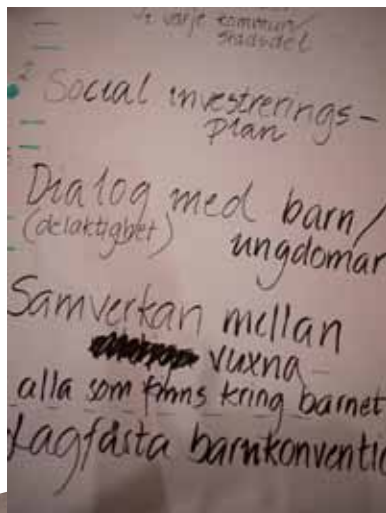 i varje kommun/
stadsdel
2 Social investrerings-
plan
Dialog med barn/
(delaktighet) ungdomar
Samverkan mellan
vuxna
alla som finns kring barnet
Lagfästa barnkonventio